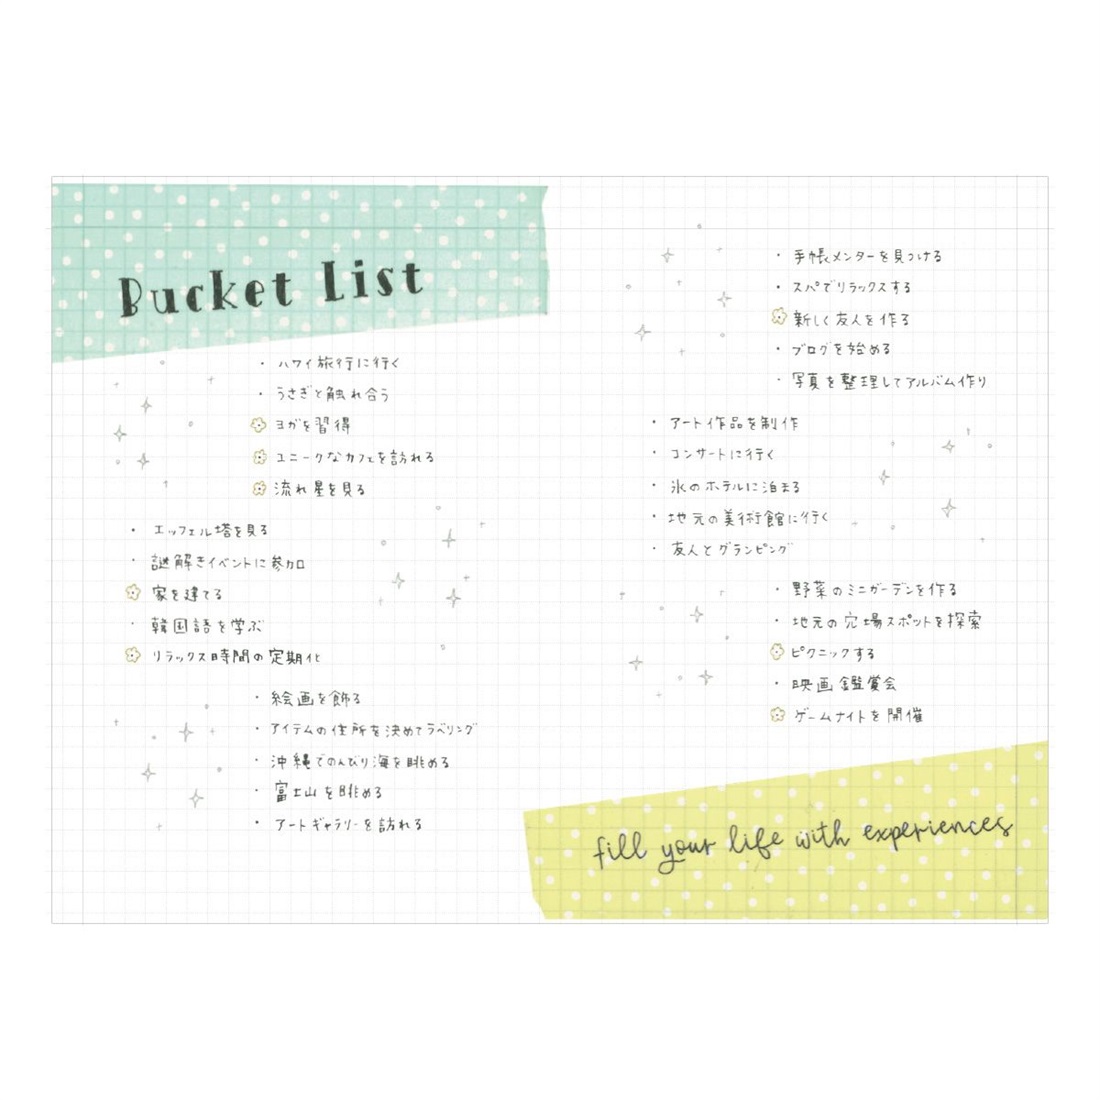 Bucket List
・ハワイ旅行に行く
・うさぎと触れ合う
ヨガを習得
ユニークなカフェを訪れる
流れ星を見る
・エッフェル塔を見る
・謎解きイベントに参加
家を建てる
・韓国語を学ぶ
リラックス時間の定期化
・絵画を飾る
・アイテムの住所を決めてラベリング
・沖縄でのんびり海を眺める
・富士山を眺める
・アートギャラリーを訪れる
・手帳メンターを見つける
・スパでリラックスする
新しく友人を作る
・ブログを始める
・写真を整理してアルバム作り
・アート作品を制作
・コンサートに行く
・氷のホテルに泊まる
・地元の美術館に行く
・友人とグランピング
・野菜のミニガーデンを作る
・地元の穴場スポットを探索
ピクニックする
・映画鑑賞会
ゲームナイトを開催
fill your life with experiences